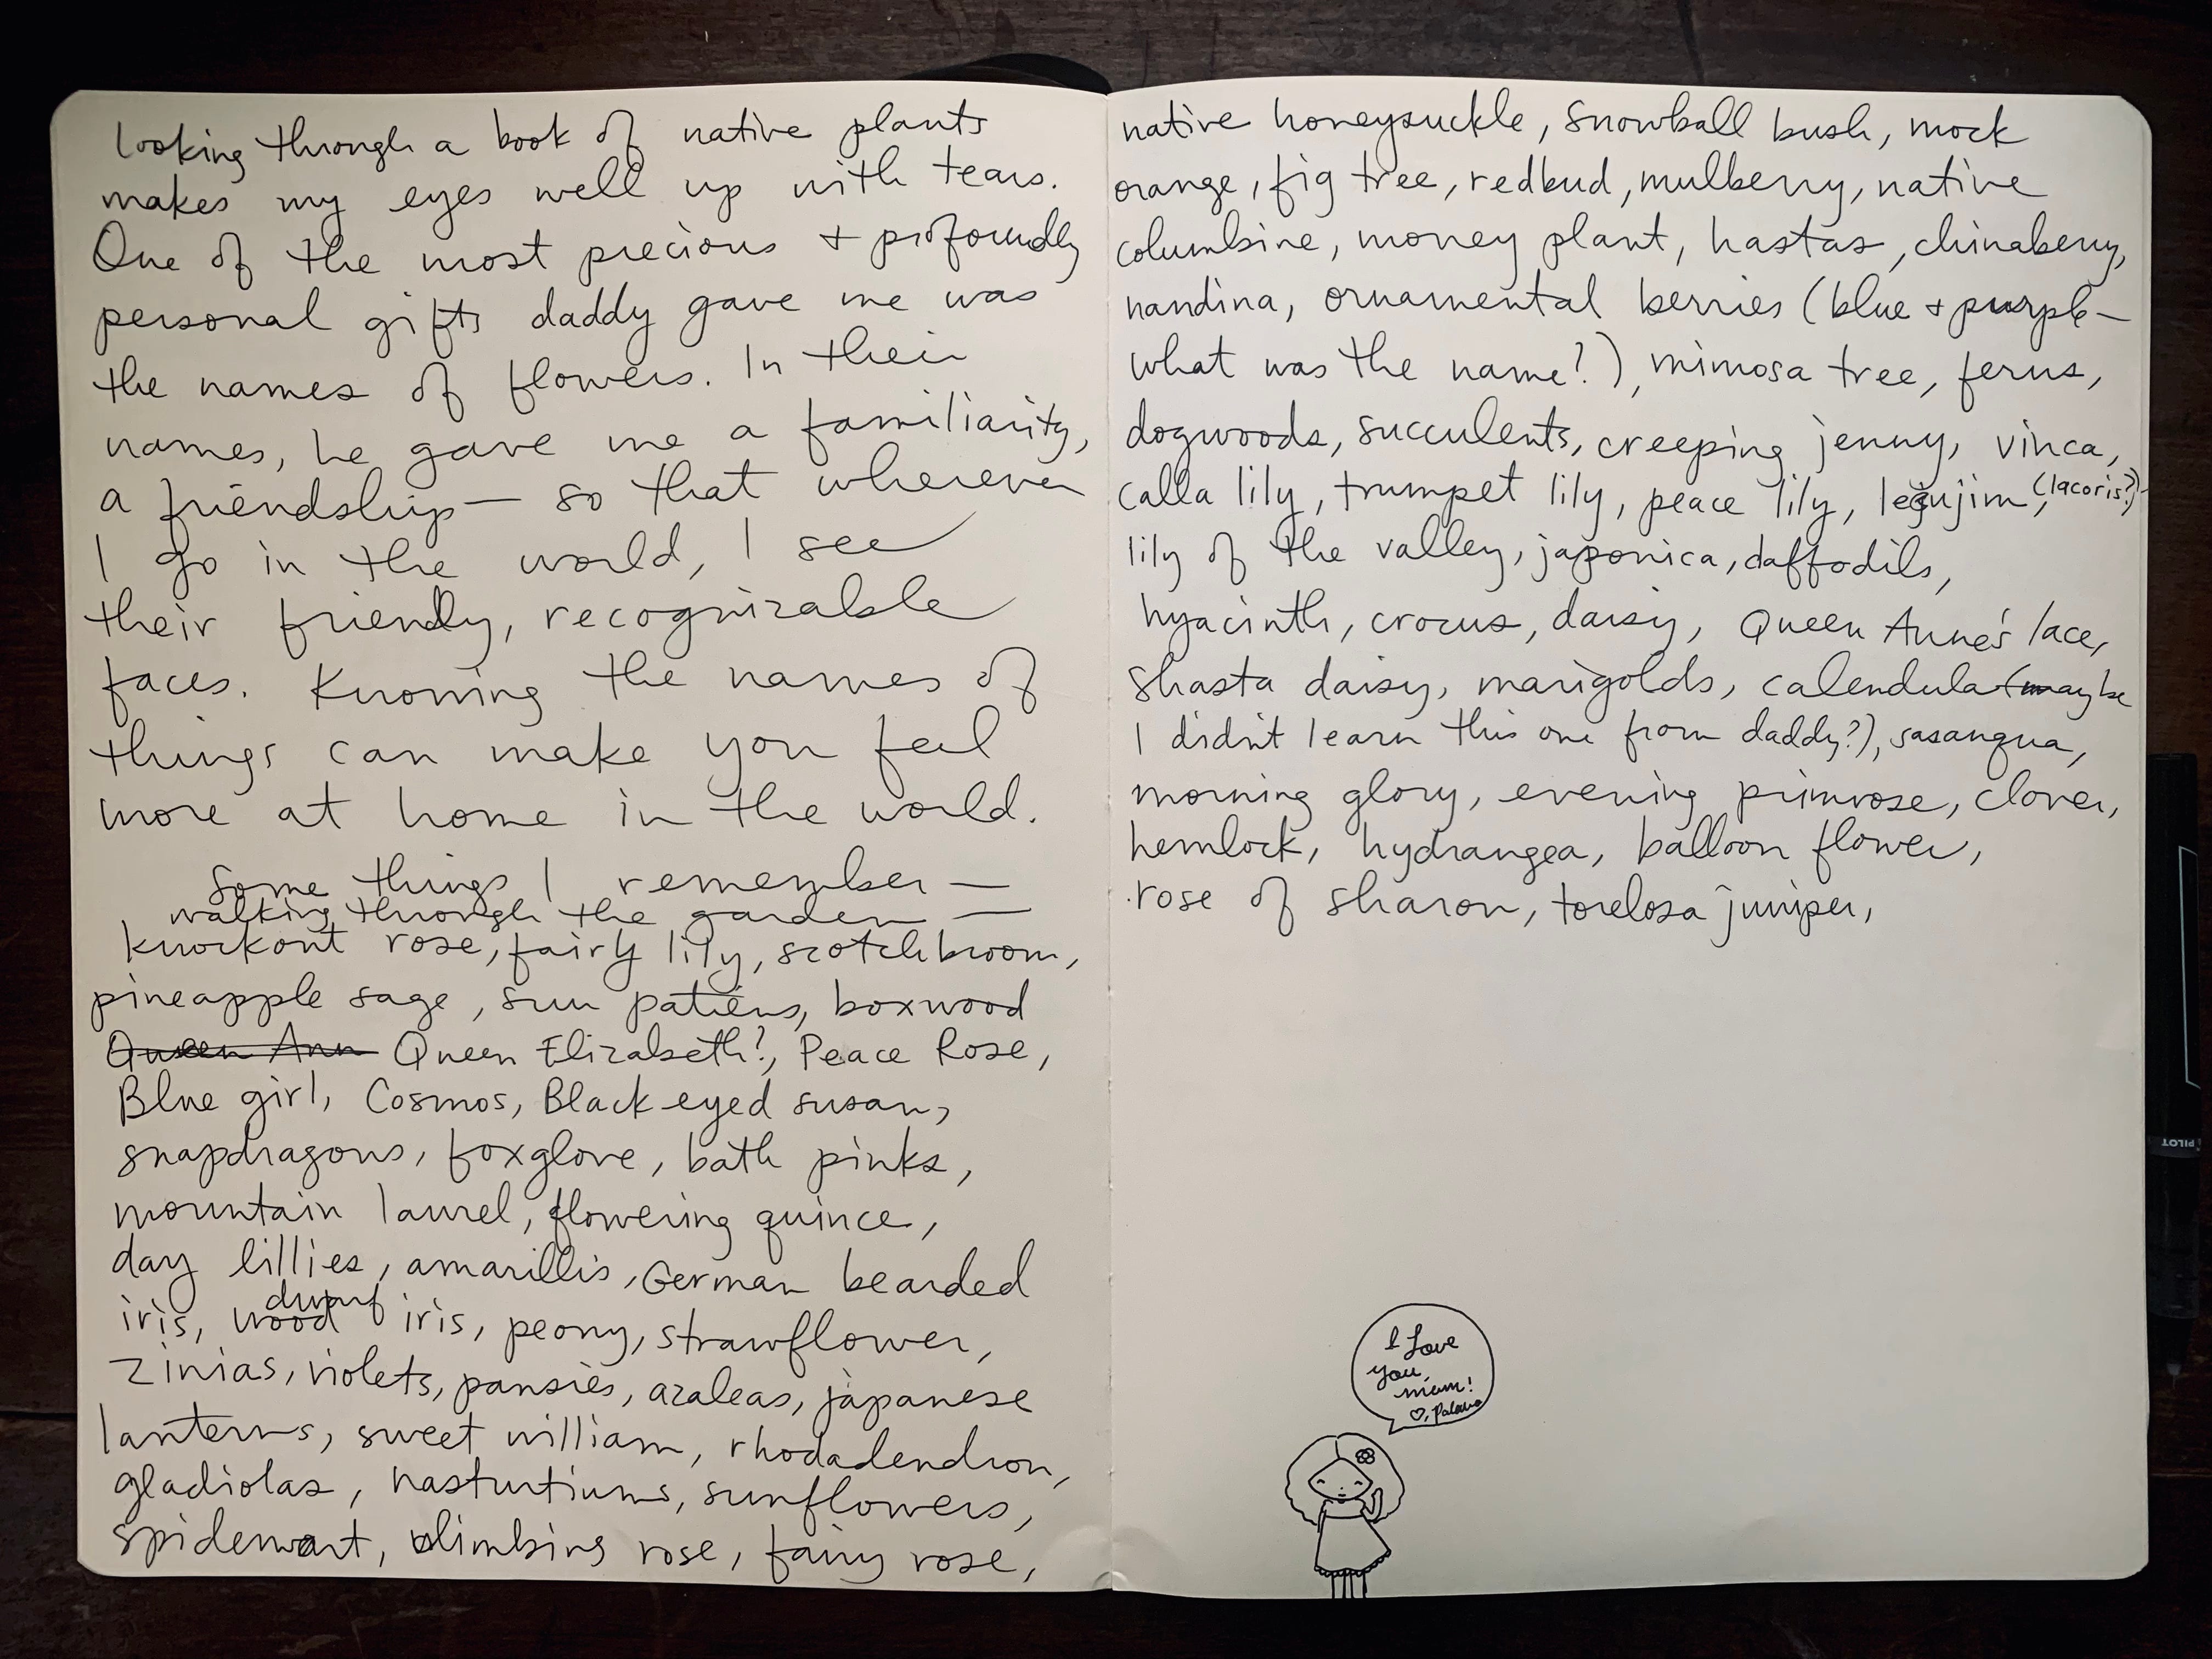 looking through a book of native plants
makes my eyes well up with tears.
One of the most precious + profoundly
personal gifts daddy gave me was
the names of flowers. In their
names, he gave me a familiarity,
a friendship — so that wherever
I go in the world, I see
their friendly, recognizable
faces. Knowing the names of
things can make you feel
more at home in the world.
Some things I remember —
walking through the garden —
knockout rose, fairy lily, scotch broom,
pineapple sage, sun patiens, boxwood
Queen Ann Queen Elizabeth?, Peace Rose,
Blue girl, Cosmos, Black eyed susan,
snapdragons, foxglove, bath pinks,
mountain laurel, flowering quince,
day lillies, amarillis, German bearded
dwarf
iris, wood iris, peony, strawflower,
zinias, violets, pansies, azaleas, japanese
lanterns, sweet william, rhodadendron,
gladiolas, nasturtiums, sunflowers,
spiderwort, climbing rose, fairy rose,
native honeysuckle, snowball bush, mock
orange, fig tree, redbud, mulberry, native
columbine, money plant, hastas, chinaberry,
nandina, ornamental berries (blue + purple —
what was the name?), mimosa tree, ferns,
dogwoods, succulents, creeping jenny, vinca,
calla lily, trumpet lily, peace lily, (lacoris?)
lily of the valley, japonica, daffodils,
hyacinth, crocus, daisy, Queen Anne's lace,
shasta daisy, marigolds, calendula (maybe
I didn't learn this one from daddy?), sasanqua,
morning glory, evening primrose, clover,
hemlock, hydrangea, balloon flower,
rose of sharon, torelosa juniper,
I Love
you,
mum!
♡, Paloma
PILOT